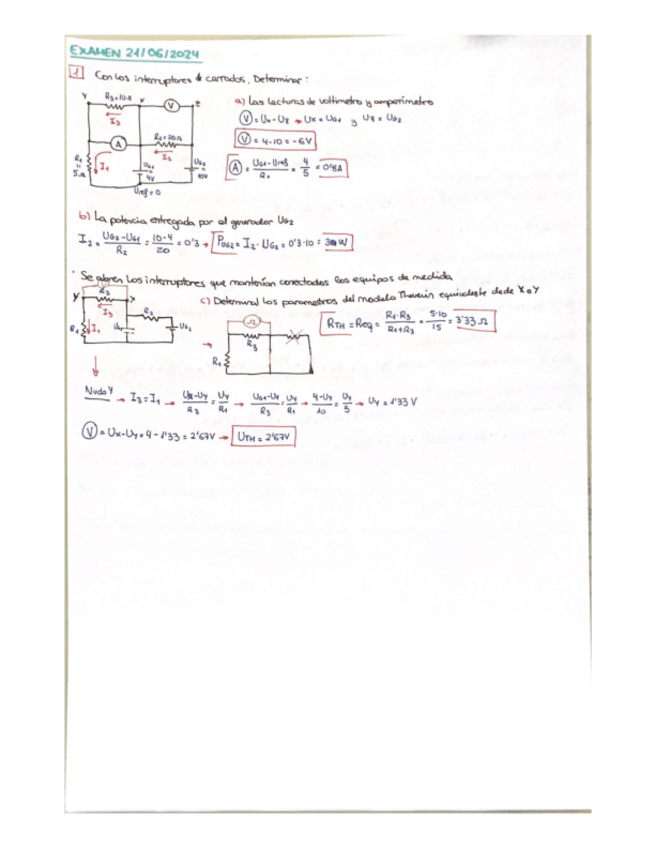 EXAMEN 21/06/2024
1 Con los interruptores cerrados, Determinar:
Y R3=10Ω X V Z
I3
A R2=20Ω
I2
R1 = 5Ω I1 UG1 = 4V UG2 = 10V
Uref=0
a) Las lecturas de voltímetro y amperímetro
V = Ux - Uz → Ux = UG1 y Uz = UG2
V = 4-10 = -6V
A = UG1-Uref / R1 = 4/5 = 0'8A
b) La potencia entregada por el generador UG2
I2 = UG2-UG1 / R2 = 10-4 / 20 = 0'3 → PUG2 = I2·UG2 = 0'3·10 = 3W
· Se abren los interruptores que mantenían conectados los equipos de medida
Y R3 X
I3 R2
R1 I1 UG2
c) Determinal los parametros del modelo Thevenin equivalente dede X e Y
Ω
R3
R1
RTH = Req = R1·R3 / R1+R3 = 5·10 / 15 = 3'33 Ω
Nudo Y → I3 = I1 → Ux-Uy / R3 = Uy / R1 → UG1-Uy / R3 = Uy / R1 → 4-Uy / 10 = Uy / 5 → Uy = 1'33 V
V = Ux-Uy = 4-1'33 = 2'67V → UTH = 2'67V